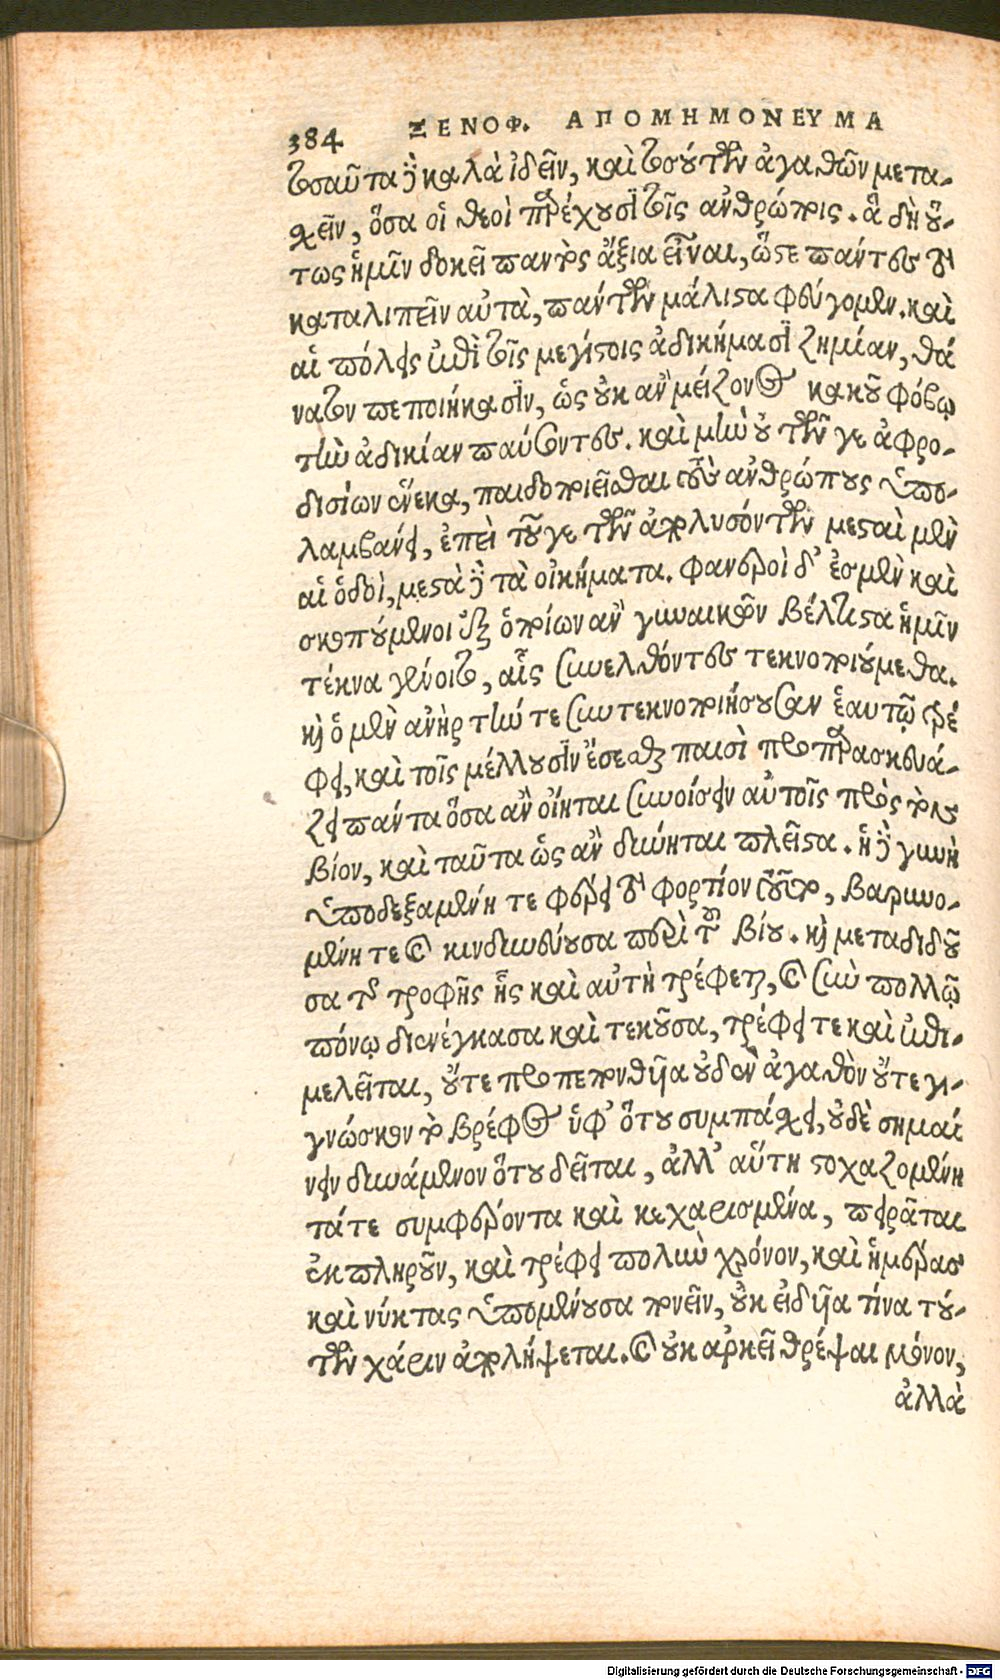 384 ΞΕΝΟΦ. ΑΠΟΜΗΜΟΝΕΥΜΑ
τοσαῦτα δὲ καλὰ ἰδεῖν, καὶ τοσούτων ἀγαθῶν μετα-
χεῖν, ὅσα οἱ θεοὶ παρέχουσι τοῖς ἀνθρώποις. ἃ δὴ οὕ-
τως ἡμῖν δοκεῖ παντὸς ἄξια εἶναι, ὥστε πάντες τὸ
καταλιπεῖν αὐτὰ, πάντων μάλιστα φεύγομεν. καὶ
αἱ πόλεις ἐπὶ τοῖς μεγίστοις ἀδικήμασι ζημίαν, θά
νατον πεποιήκασιν, ὡς οὐκ ἂν μείζονος κακοῦ φόβῳ
τὴν ἀδικίαν παύσοντες. καὶ μὴν οὐ τῶν γε ἀφρο-
δισίων ἕνεκα, παιδοποιεῖσθαι τοὺς ἀνθρώπους ὑπο-
λαμβάνεις, ἐπεὶ τούγε τῶν ἀπολυσόντων μεσταὶ μὲν
αἱ ὁδοὶ, μεστὰ δὲ τὰ οἰκήματα. φανεροὶ δ' ἐσμὲν καὶ
σκοπούμενοι ἐξ ὁποίων ἂν γυναικῶν βέλτιστα ἡμῖν
τέκνα γένοιτο, αἷς συνελθόντες τεκνοποιούμεθα.
καὶ ὁ μὲν ἀνὴρ τήν τε συντεκνοποιήσουσαν ἑαυτῷ τρέ
φει, καὶ τοῖς μέλλουσιν ἔσεσθαι παισὶ προπαρασκευά-
ζει πάντα ὅσα ἂν οἴηται συνοίσειν αὐτοῖς πρὸς τὸν
βίον, καὶ ταῦτα ὡς ἂν δύνηται πλεῖστα. ἡ δὲ γυνὴ
ὑποδεξαμένη τε φέρει τὸ φορτίον τοῦτο, βαρυνο-
μένη τε καὶ κινδυνεύουσα περὶ τοῦ βίου. καὶ μεταδιδοῦ
σα τῆς τροφῆς ἧς καὶ αὐτὴ τρέφεται, καὶ σὺν πολλῷ
πόνῳ διενέγκασα καὶ τεκοῦσα, τρέφει τε καὶ ἐπι-
μελεῖται, οὔτε προπεπονθυῖα οὐδὲν ἀγαθὸν οὔτε γι-
γνώσκον τὸ βρέφος ὑφ' ὅτου συμπάσχει, οὐδὲ σημαί
νειν δυνάμενον ὅτου δεῖται, ἀλλ' αὕτη στοχαζομένη
τάτε συμφέροντα καὶ κεχαρισμένα, πειρᾶται
ἐκπληροῦν, καὶ τρέφει πολὺν χρόνον, καὶ ἡμέρας
καὶ νύκτας ὑπομένουσα πονεῖν, οὐκ εἰδυῖα τίνα τού-
των χάριν ἀπολήψεται. καὶ οὐκ ἀρκεῖ θρέψαι μόνον,
ἀλλὰ
Digitalisierung gefördert durch die Deutsche Forschungsgemeinschaft - DFG